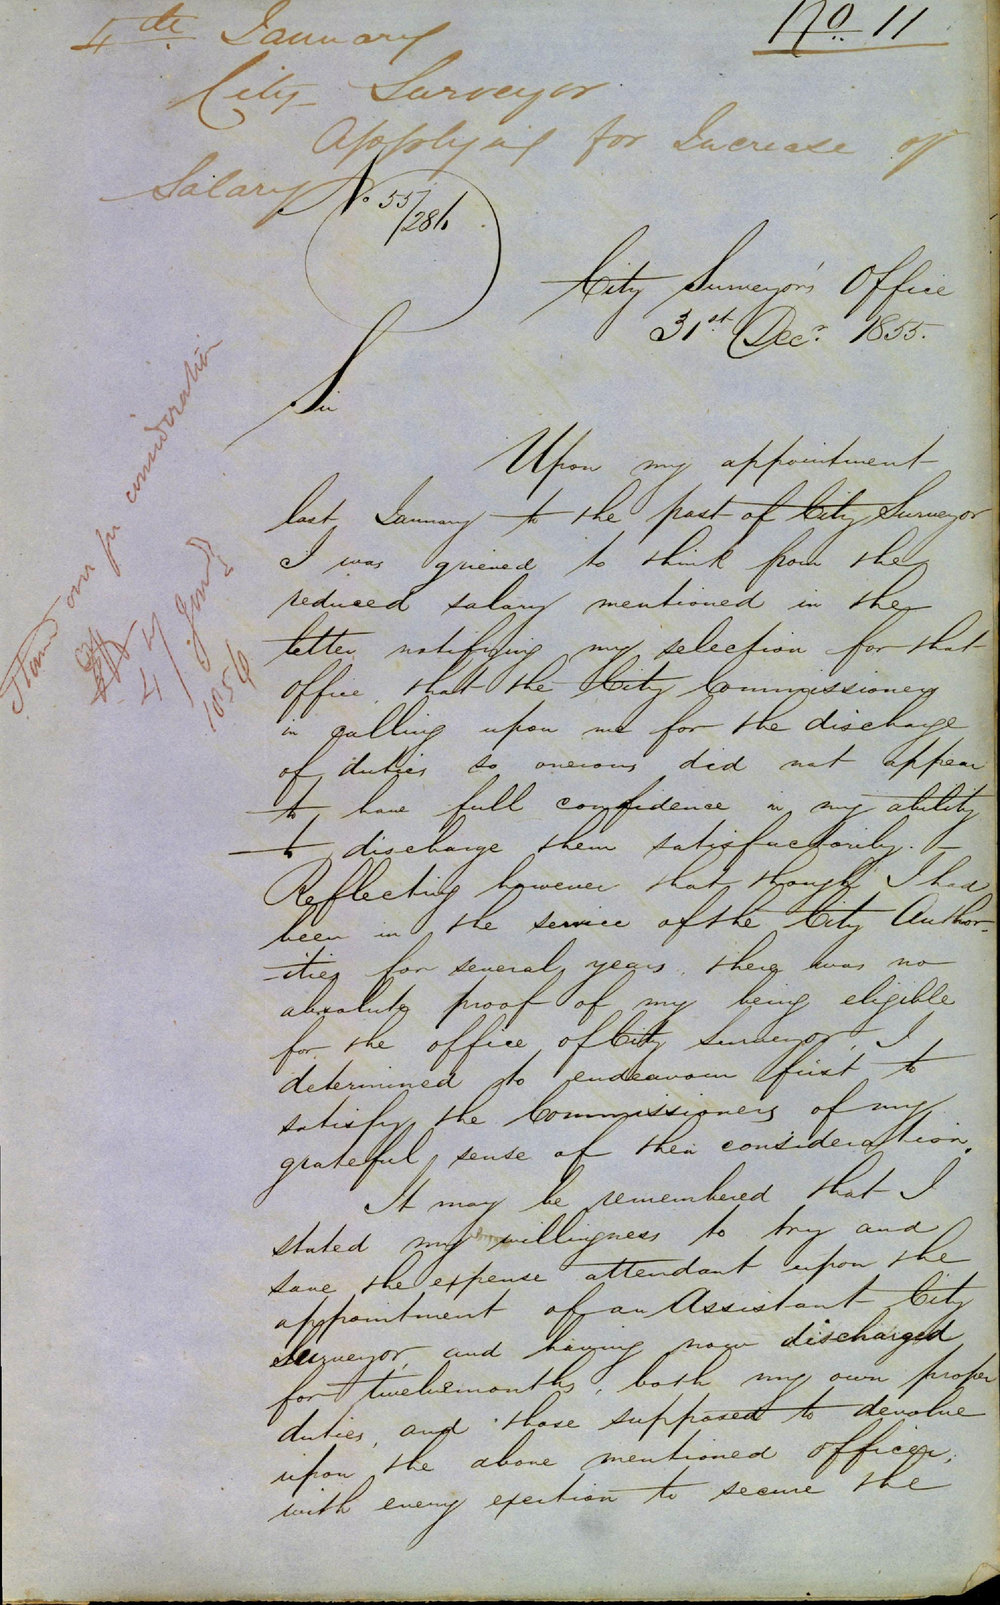 4th January
No 11
City Surveyor
Applying for Increase of
Salary
No. 55/286
City Surveyor's Office
31st Decr. 1855.
Sir
Upon my appointment
last January to the post of City Surveyor
I was grieved to think from the
reduced salary mentioned in the
letter notifying my selection for that
office, that the City Commissioners
in calling upon me for the discharge
of duties so onerous did not appear
to have full confidence in my ability
to discharge them satisfactorily. –
Reflecting however that though I had
been in the service of the City Author-
-ities for several years, there was no
absolute proof of my being eligible
for the office of City Surveyor, I
determined to endeavour first to
satisfy the Commissioners of my
grateful sense of their consideration.
It may be remembered that I
stated my willingness to try and
save the expense attendant upon the
appointment of an Assistant City
Surveyor, and having now discharged
for twelvemonths, both my own proper
duties, and those supposed to devolve
upon the above mentioned officer,
with every exertion to secure the
Stand over for consideration
4/ Jany
1856